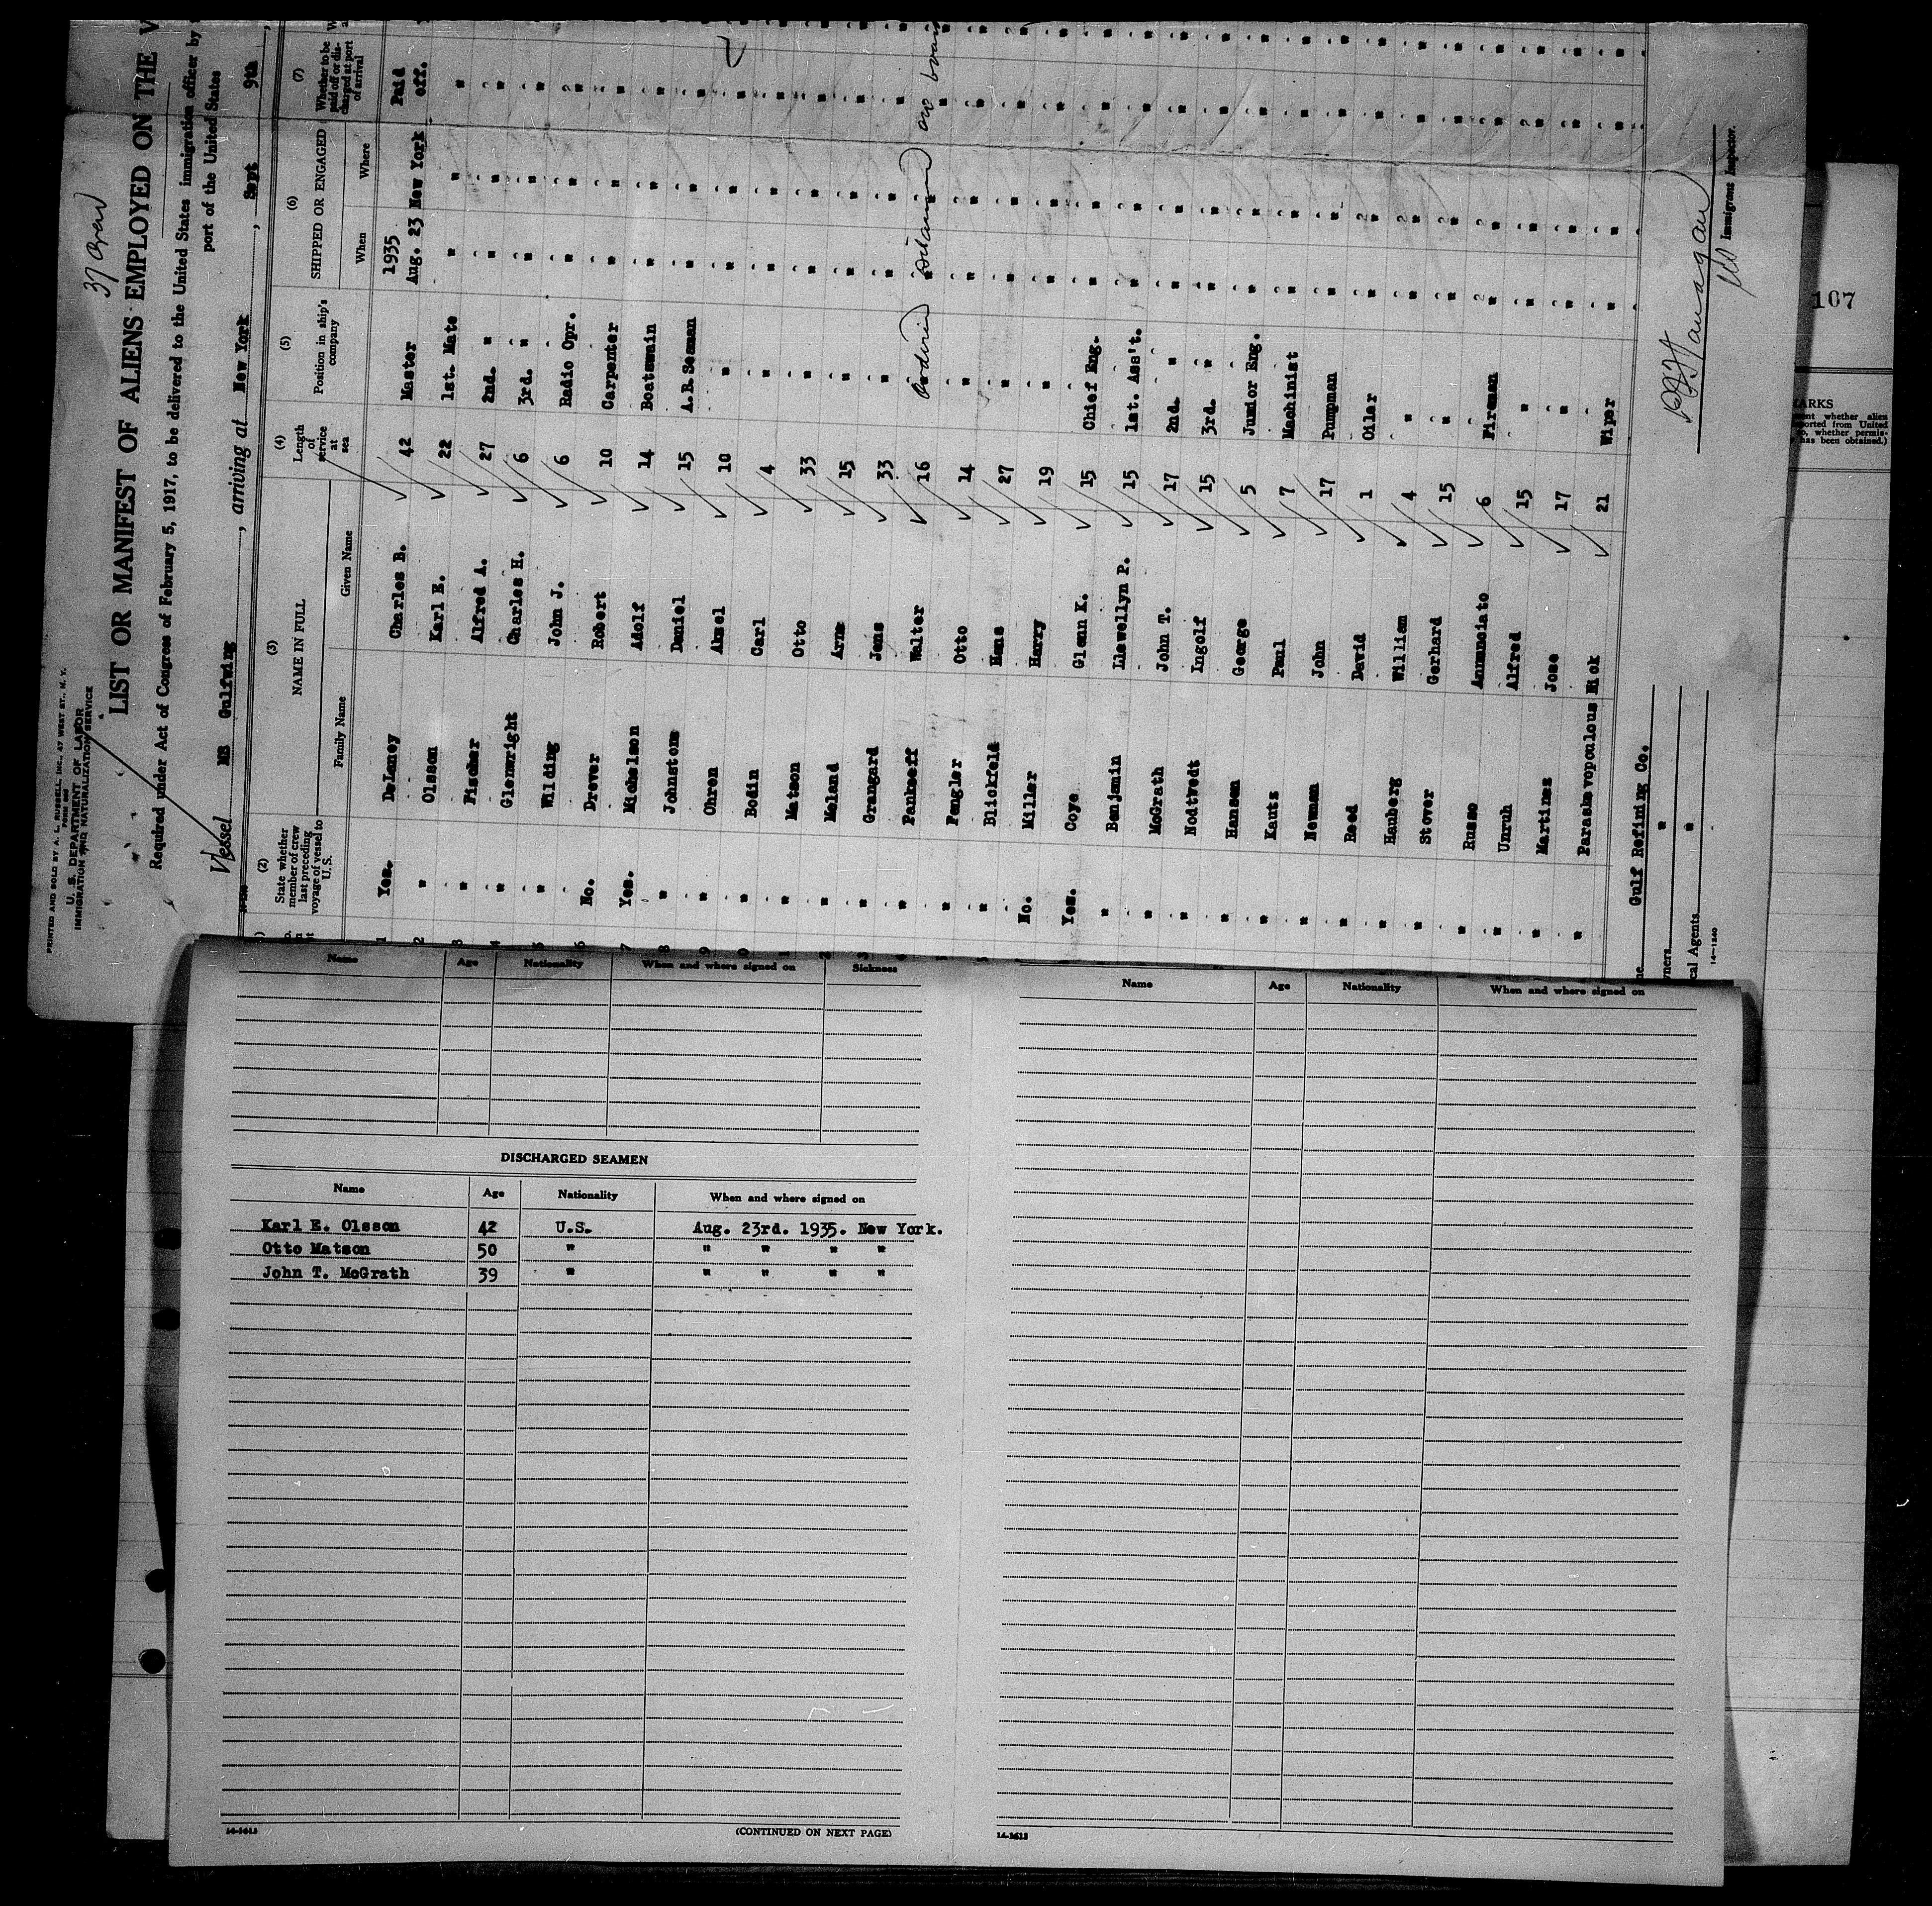 PRINTED AND SOLD BY A. L. RUSSELL, INC., 47 WEST ST., N. Y.
U. S. DEPARTMENT OF LABOR
IMMIGRATION AND NATURALIZATION SERVICE
LIST OR MANIFEST OF ALIENS EMPLOYED ON THE V
Required under Act of Congress of February 5, 1917, to be delivered to the United States immigration officer by
port of the United States
Vessel MS Gulfwing, arriving at New York, Sept 9th,
(2) State whether member of crew last preceding voyage of vessel to U.S.
(3) NAME IN FULL
Family Name Given Name
(4) Length of service at sea
(5) Position in ship's company
(6) SHIPPED OR ENGAGED
When Where
(7) Whether to be paid off or discharged at port of arrival
1935 Paid
1 Yes. DeLaney Charles B. 42 Master Aug. 23 New York off.
2 " Olsson Karl E. 22 1st. Mate " " "
3 " Fischer Alfred A. 27 2nd. " " " "
4 " Glenwright Charles H. 6 3rd. " " " "
5 " Wilding John J. 6 Radio Opr. " " "
6 No. Drever Robert 10 Carpenter " " "
7 Yes. Michelson Adolf 14 Boatswain " " "
8 " Johnstone Daniel 15 A.B. Seaman " " "
9 " Ohren Aksel 10 " " " "
0 " Bodin Carl 4 " " " "
1 " Matson Otto 33 " " " "
2 " Meland Arne 15 " " " "
3 " Grangard Jens 33 " " " "
4 " Pankseff Walter 16 " "
5 " Pengler Otto 14 " " " "
" Blickfeld Hans 27 " " " "
No. Miller Harry 19 " " " "
Yes. Coye Glenn K. 15 Chief Eng. " " "
" Benjamin Llewellyn P. 15 1st. Ass't. " " "
" McGrath John T. 17 2nd. " " " "
" Nodtvedt Ingolf 15 3rd. " " " "
" Hansen George 5 Junior Eng. " " "
" Kautz Paul 7 Machinist " " "
" Newman John 17 Pumpman " " "
" Reed David 1 Oiler " " "
" Hauberg William 4 " " " "
" Stover Gerhard 15 " " " "
" Russo Annunciato 6 Fireman " " "
" Umruh Alfred 15 " " " "
" Martinez Jose 17 " " " "
" Paraskevopoulous Nick 21 Wiper " " "
Gulf Refining Co.
ners "
cal Agents "
14-1240
Immigrant Inspector.
107
ARKS
Name Age Nationality When and where signed on Sickness
Name Age Nationality When and where signed on
DISCHARGED SEAMEN
Name Age Nationality When and where signed on
Karl E. Olsson 42 U.S. Aug. 23rd. 1935. New York.
Otto Matson 50 " " " " "
John T. McGrath 39 " " " " "
14-1613 (CONTINUED ON NEXT PAGE)
14-1613